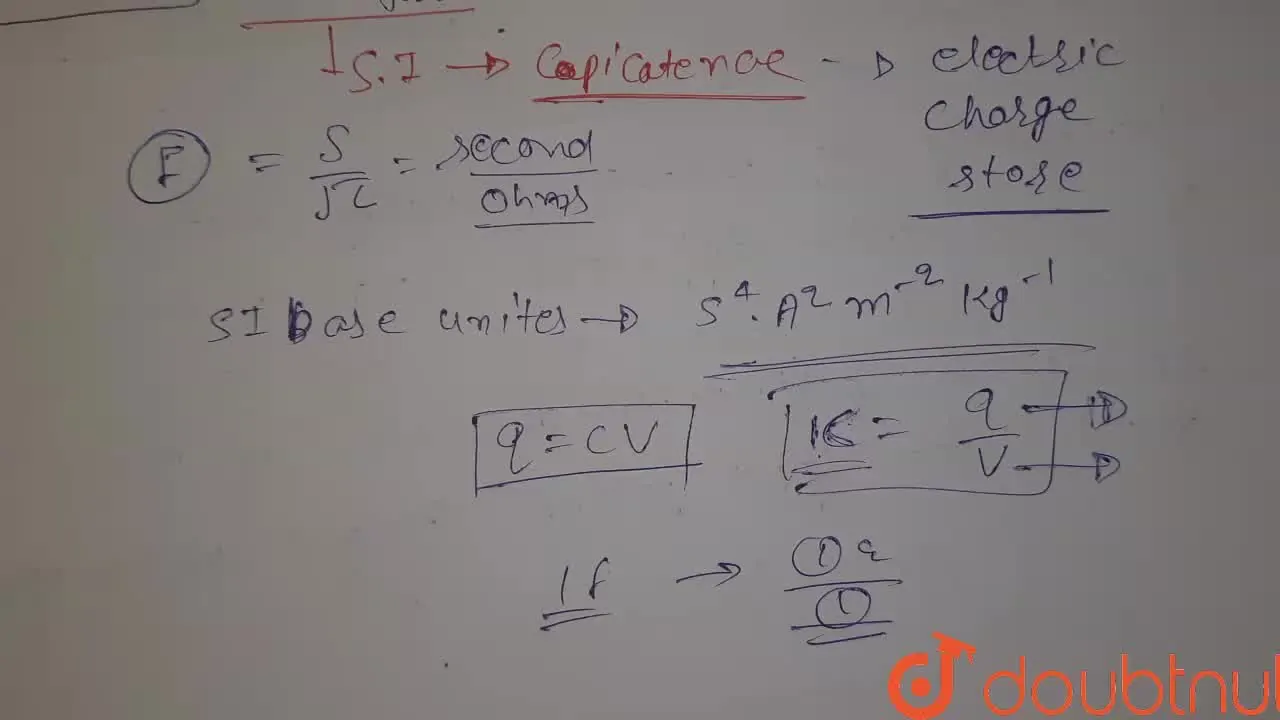 S.I → Capicatence → electric
charge
store
F = S/Ω = second/ohms
SI base unites → S⁴·A² m⁻² kg⁻¹
q = CV
1C = q/V
1f → 1q/1
doubtnut